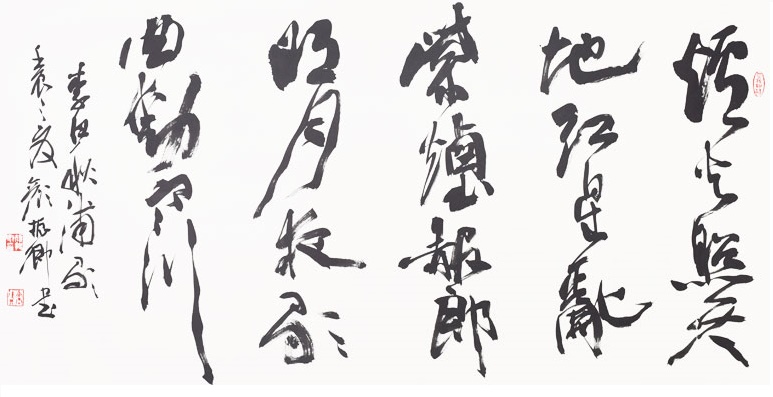 爐火照天
地紅星亂
紫煙赧郎
明月夜歌
曲動寒川
李白秋浦歌
壬辰之夏顏振卿書